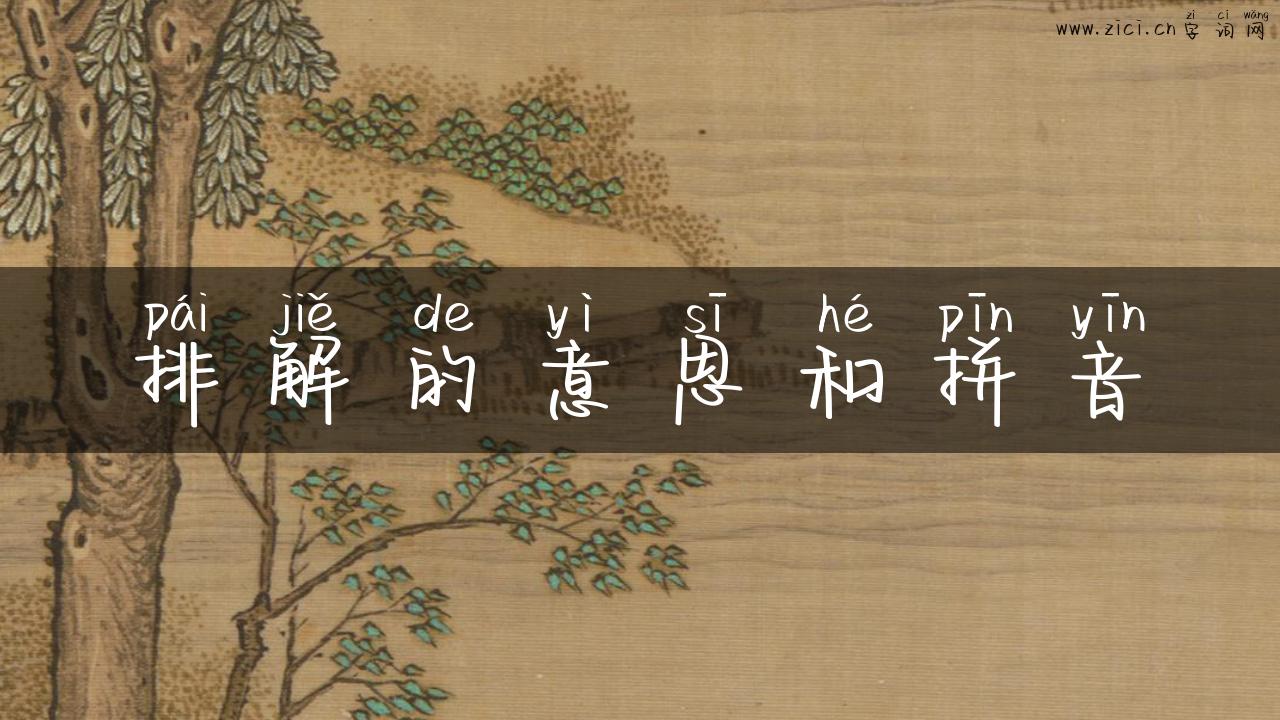 zì cí wǎng
www.zici.cn 字词网
pái jiě de yì sī hé pīn yīn
排解的意思和拼音